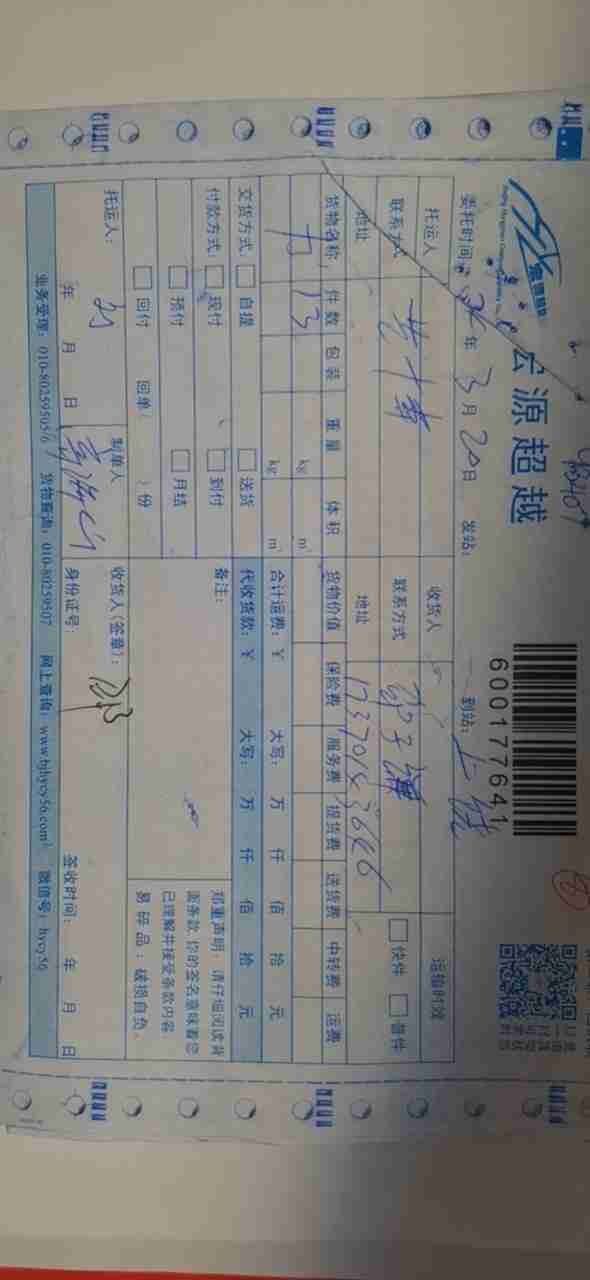 宏源超越
600177641
委托时间: 年 3 月 20 日 发站: 到站: 上饶
托运人 收货人 运输时效
联系方式 联系方式 快件 普件
地址 地址 17370143646
货物名称 件数 包装 重量 体积 货物价值 保险费 服务费 提货费 送货费 中转费 运费
13 kg m³
kg m³ 合计运费:¥ 大写: 万 仟 佰 拾 元
交货方式: 自提 送货 代收货款:¥ 大写: 万 仟 佰 拾 元
付款方式: 现付 到付 备注:
预付 月结
回付 回单( )份
郑重声明:请仔细阅读背
面条款,你的签名意味着您
已理解并接受条款内容
易碎品:破损自负。
托运人: 制单人 收货人(签章):
年 月 日 身份证号: 签收时间: 年 月 日
业务受理:010-80259505/6 货物查询:010-80259507 网上查询:www.bjhycy56.com 微信号:hycy56